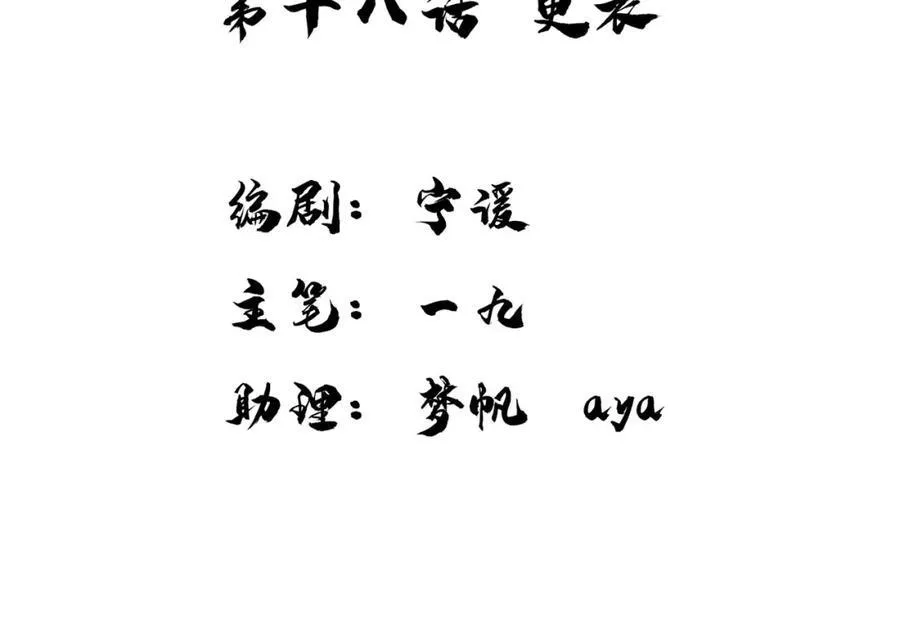 第十八话 更衣
编剧： 宁谖
主笔： 一九
助理： 梦帆 aya